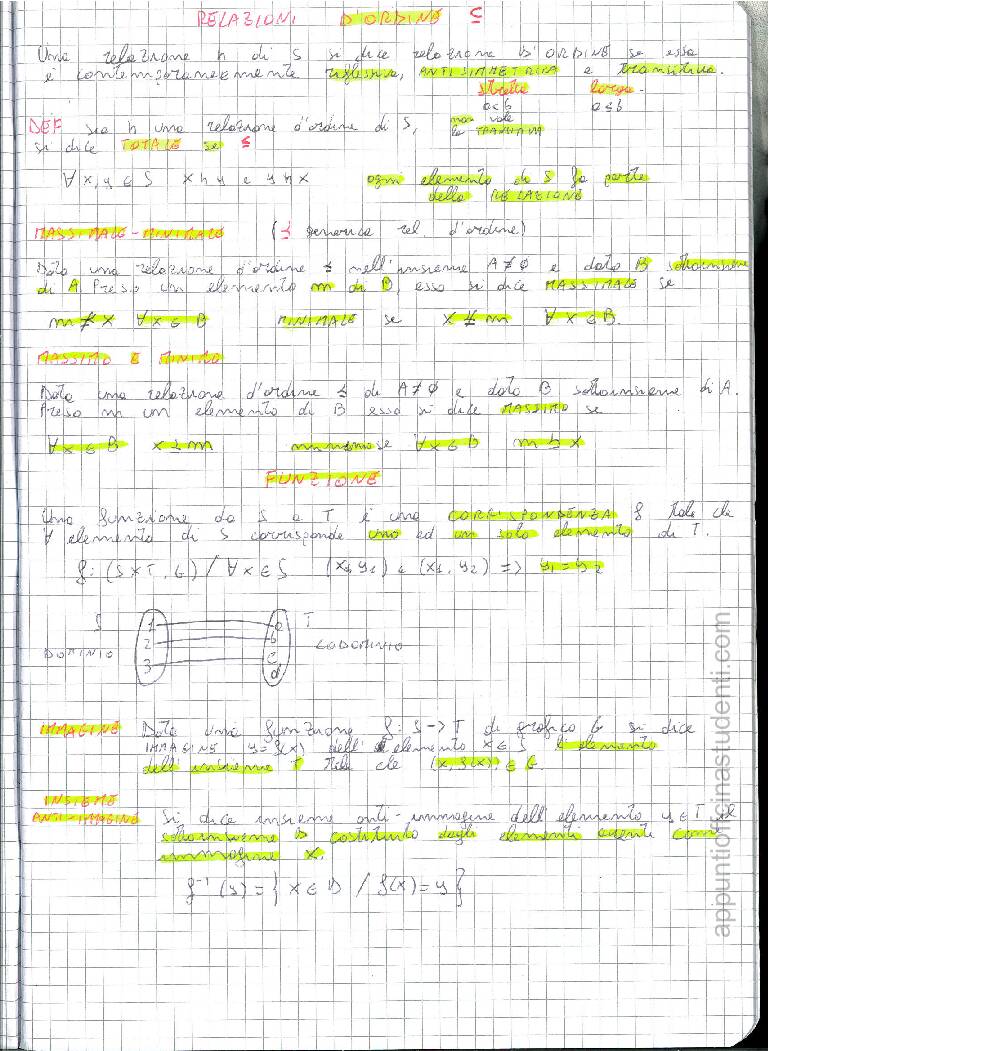 RELAZIONI D'ORDINE ≤
Una relazione h di S si dice relazione D'ORDINE se essa
è contemporaneamente riflessiva, ANTISIMMETRICA e transitiva.
stretta larga
a<b a≤b
non vale
la
DEF sia h una relazione d'ordine di S,
si dice TOTALE se ≤
∀ x,y ∈ S x h y e y h x ogni elemento di S fa parte
della RELAZIONE
MASSIMALE-MINIMALE (≾ generica rel. d'ordine)
Data una relazione d'ordine ≾ nell'insieme A≠∅ e dato B sottoinsieme
di A. Preso un elemento m di B, esso si dice MASSIMALE se
m ⋠ x ∀x∈B MINIMALE se x ⋠ m ∀x∈B.
MASSIMO E MINIMO
Data una relazione d'ordine ≾ di A≠∅ e dato B sottoinsieme di A.
Preso m un elemento di B esso si dice MASSIMO se
∀x∈B x≾m minimo se ∀x∈B m≾x
FUNZIONE
Una funzione da S a T è una CORRISPONDENZA f tale che
∀ elemento di S corrisponde uno ed un solo elemento di T.
f: (S×T, G) / ∀x∈S (x,y₁) e (x,y₂) => y₁=y₂
S 1 a T
DOMINIO 2 b CODOMINIO
3 c
d
IMMAGINE Data una funzione f: S→T di grafico G si dice
IMMAGINE y=f(x) dell'elemento x∈S l'elemento
dell'insieme T tale che (x,f(x)) ∈ G.
INSIEME
ANTI-IMMAGINE Si dice insieme anti-immagine dell'elemento y∈T il
sottoinsieme D costituito dagli elementi aventi come
immagine x.
f⁻¹(y)={x∈D / f(x)=y}
appuntiofficinastudenti.com